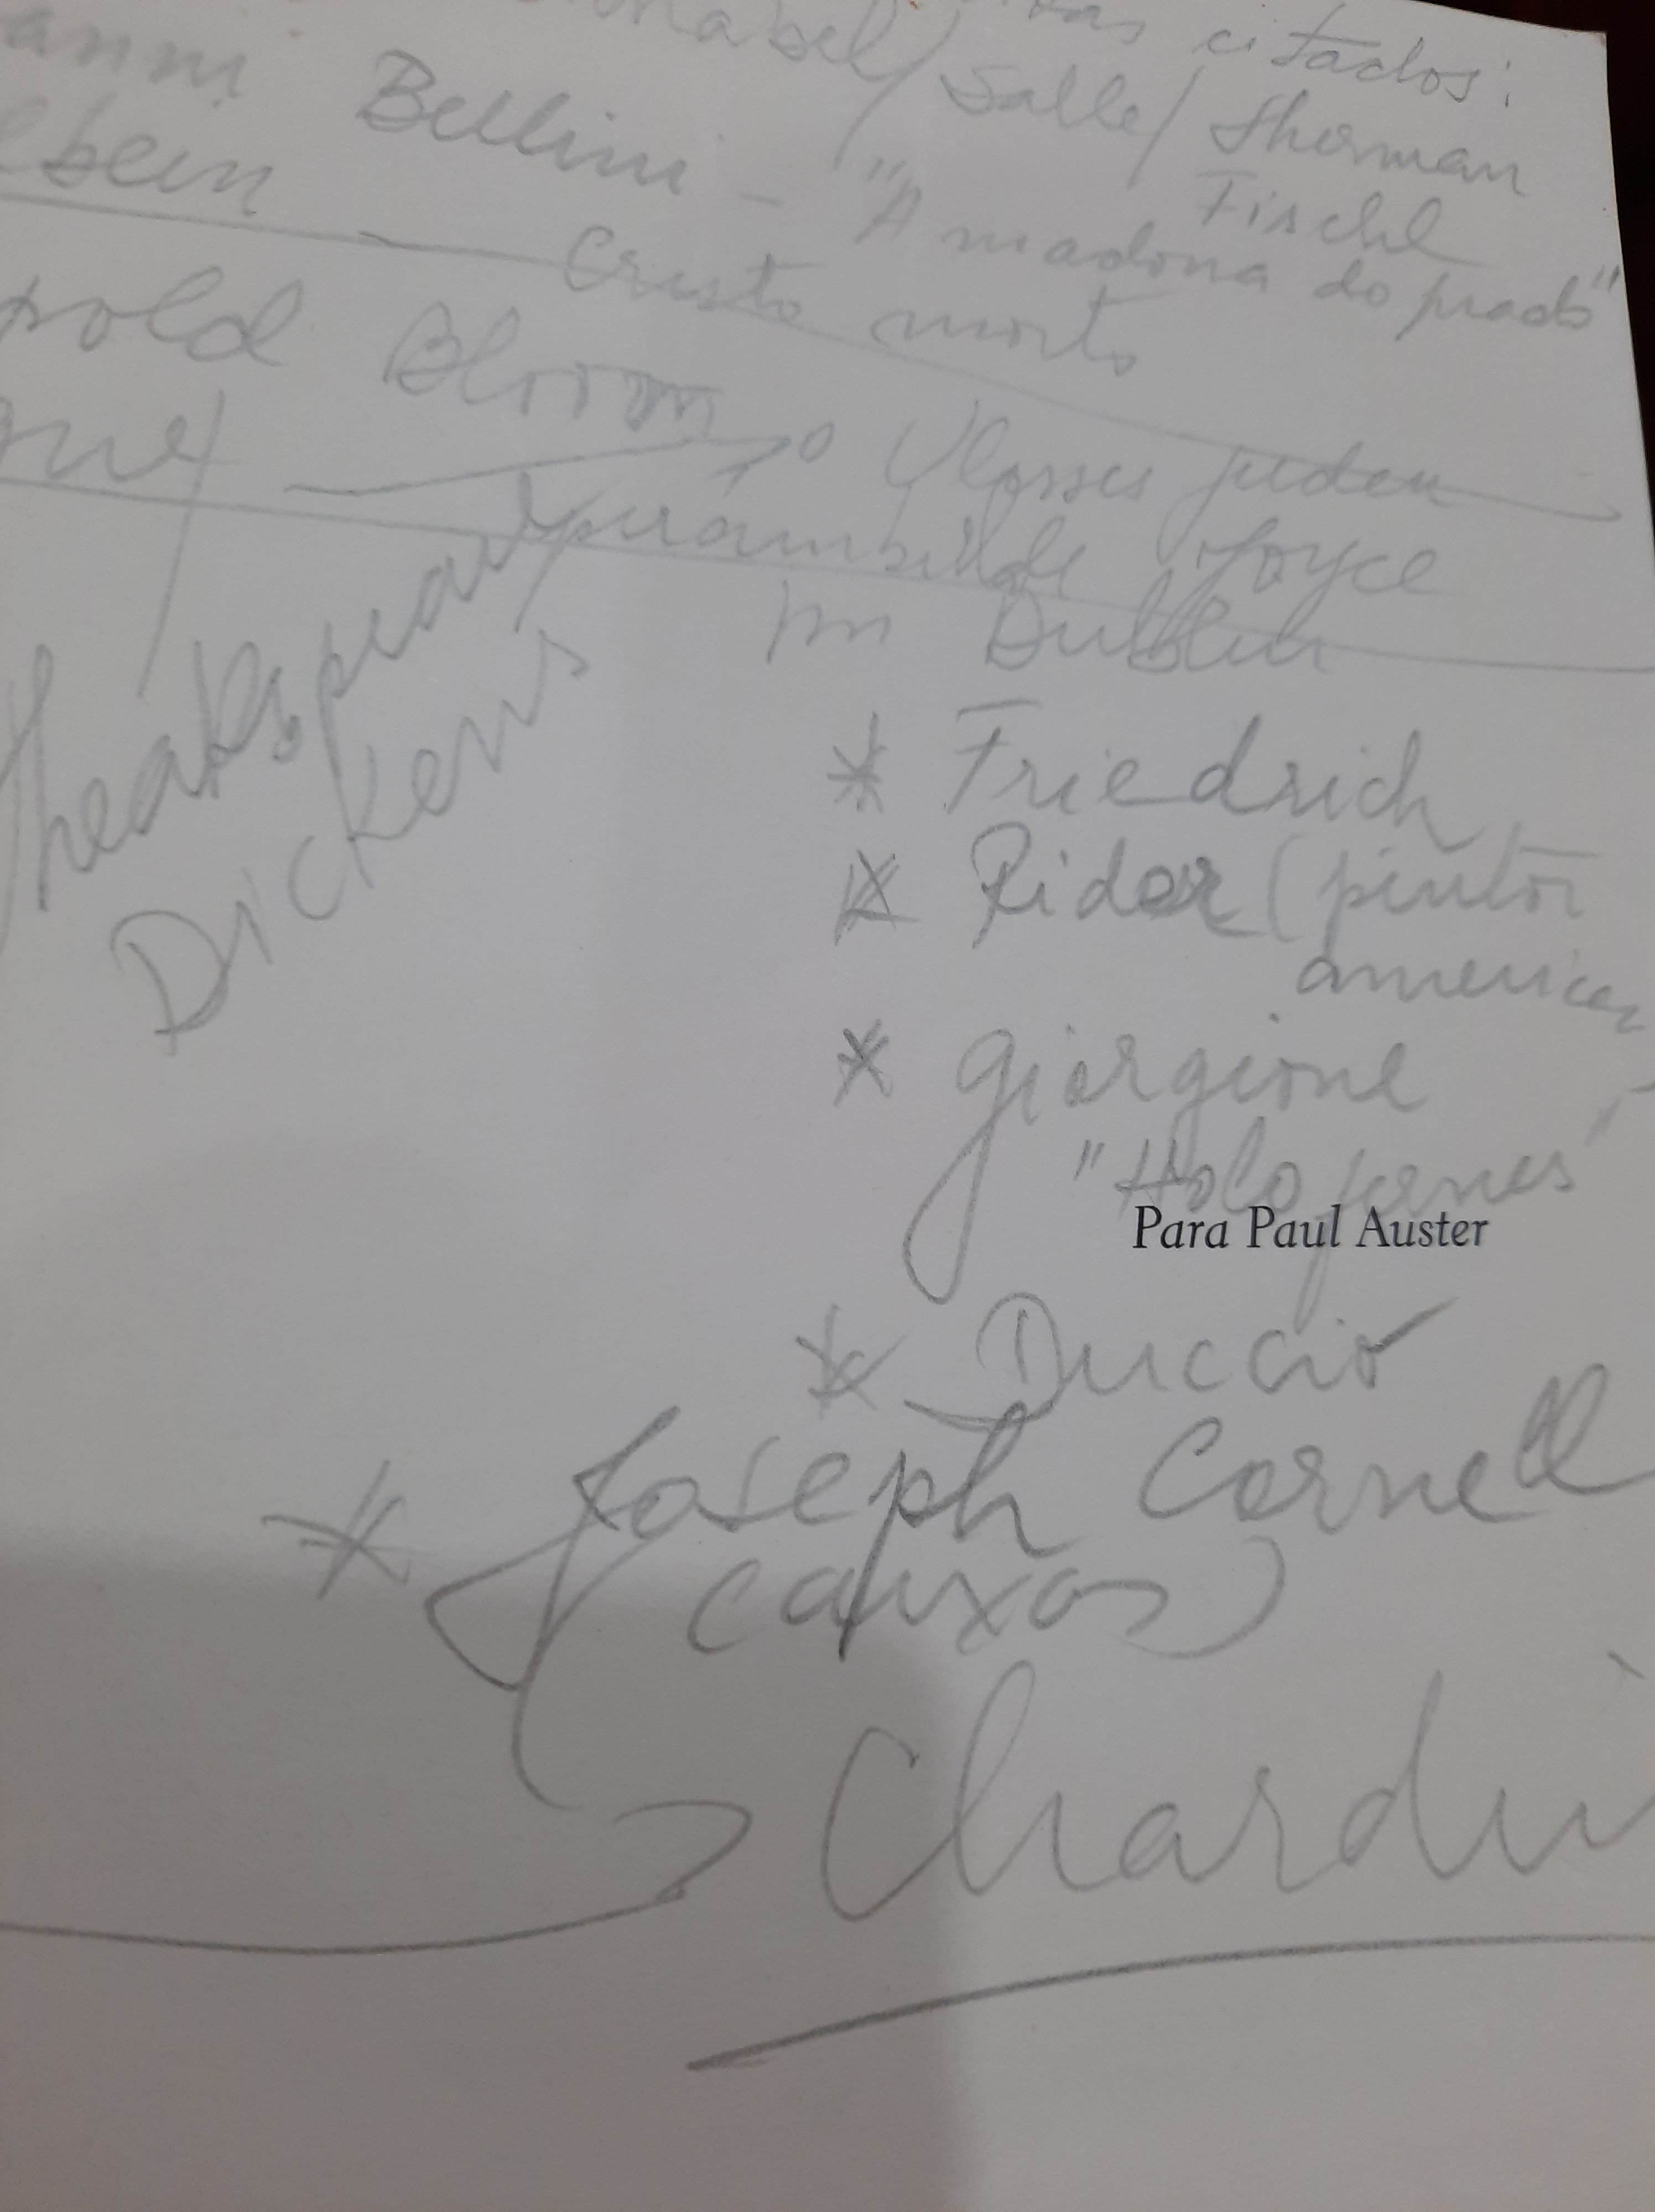 citados:
Salle/ Sherman
Fischl
anni Bellini - "A madona do prado"
lbein Cristo morto
pold Bloom
o Ulisses judeu
perambula de Joyce
im Dublin
Sheakspeare
Dickens
* Friedrich
* Rider (pintor
american
* Giorgione
"Holofernes"
Para Paul Auster
* Duccio
* Joseph Cornell
(caixas)
Chardin